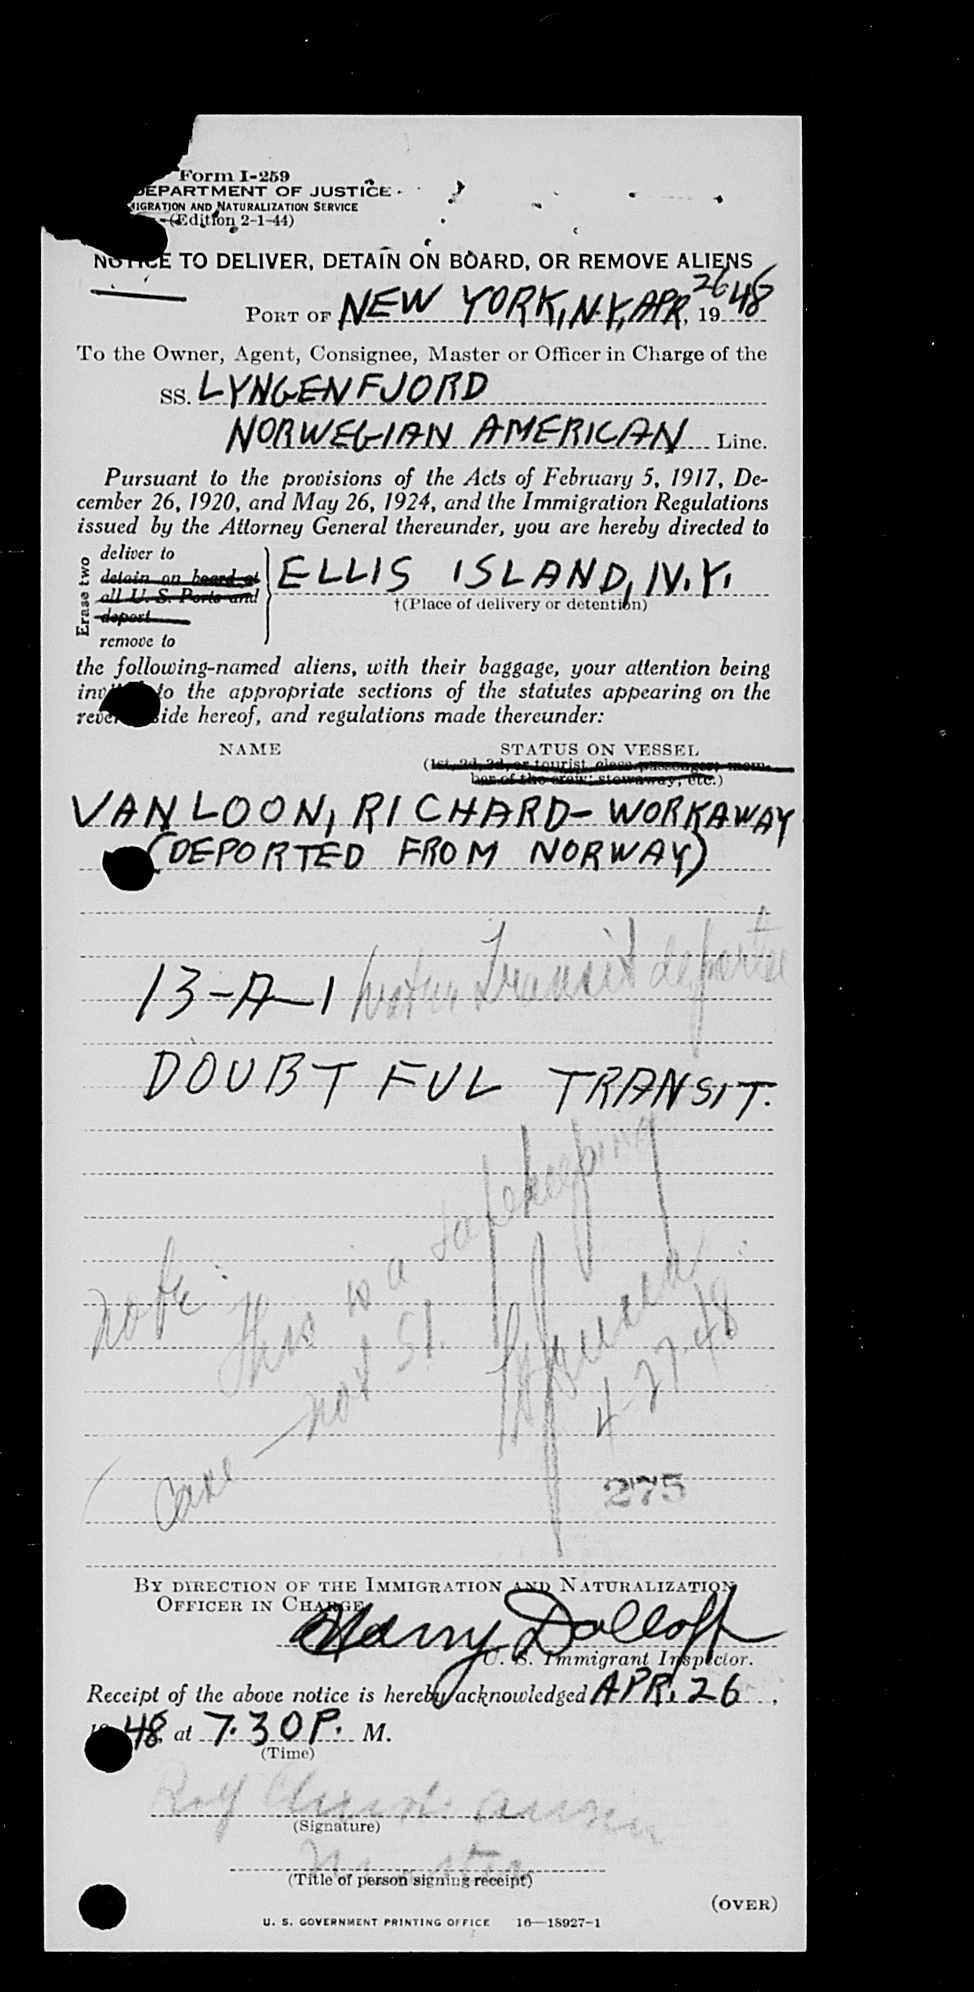 Form I-259
DEPARTMENT OF JUSTICE
IGRATION AND NATURALIZATION SERVICE
(Edition 2-1-44)
NOTICE TO DELIVER, DETAIN ON BOARD, OR REMOVE ALIENS
PORT OF NEW YORK, N.Y., APR. 26, 1948
To the Owner, Agent, Consignee, Master or Officer in Charge of the
SS. LYNGENFJORD
NORWEGIAN AMERICAN Line.
Pursuant to the provisions of the Acts of February 5, 1917, De-
cember 26, 1920, and May 26, 1924, and the Immigration Regulations
issued by the Attorney General thereunder, you are hereby directed to
Erase two
deliver to
detain on board at
all U. S. Ports and
deport
remove to
ELLIS ISLAND, N.Y.
†(Place of delivery or detention)
the following-named aliens, with their baggage, your attention being
invited to the appropriate sections of the statutes appearing on the
reverse side hereof, and regulations made thereunder:
NAME STATUS ON VESSEL
(1st, 2d, 3d, or tourist class passenger; mem-
ber of the crew; stowaway, etc.)
VAN LOON, RICHARD - WORKAWAY
(DEPORTED FROM NORWAY)
13-A-1 Transit
DOUBTFUL TRANSIT.
Note: This is a safekeeping
case - not S.I.
4-27-48
275
BY DIRECTION OF THE IMMIGRATION AND NATURALIZATION
OFFICER IN CHARGE
Harry Dolloff
U. S. Immigrant Inspector.
Receipt of the above notice is hereby acknowledged APR. 26,
1948 at 7.30 P. M.
(Time)
(Signature)
(Title of person signing receipt)
(OVER)
U. S. GOVERNMENT PRINTING OFFICE 16—18927-1